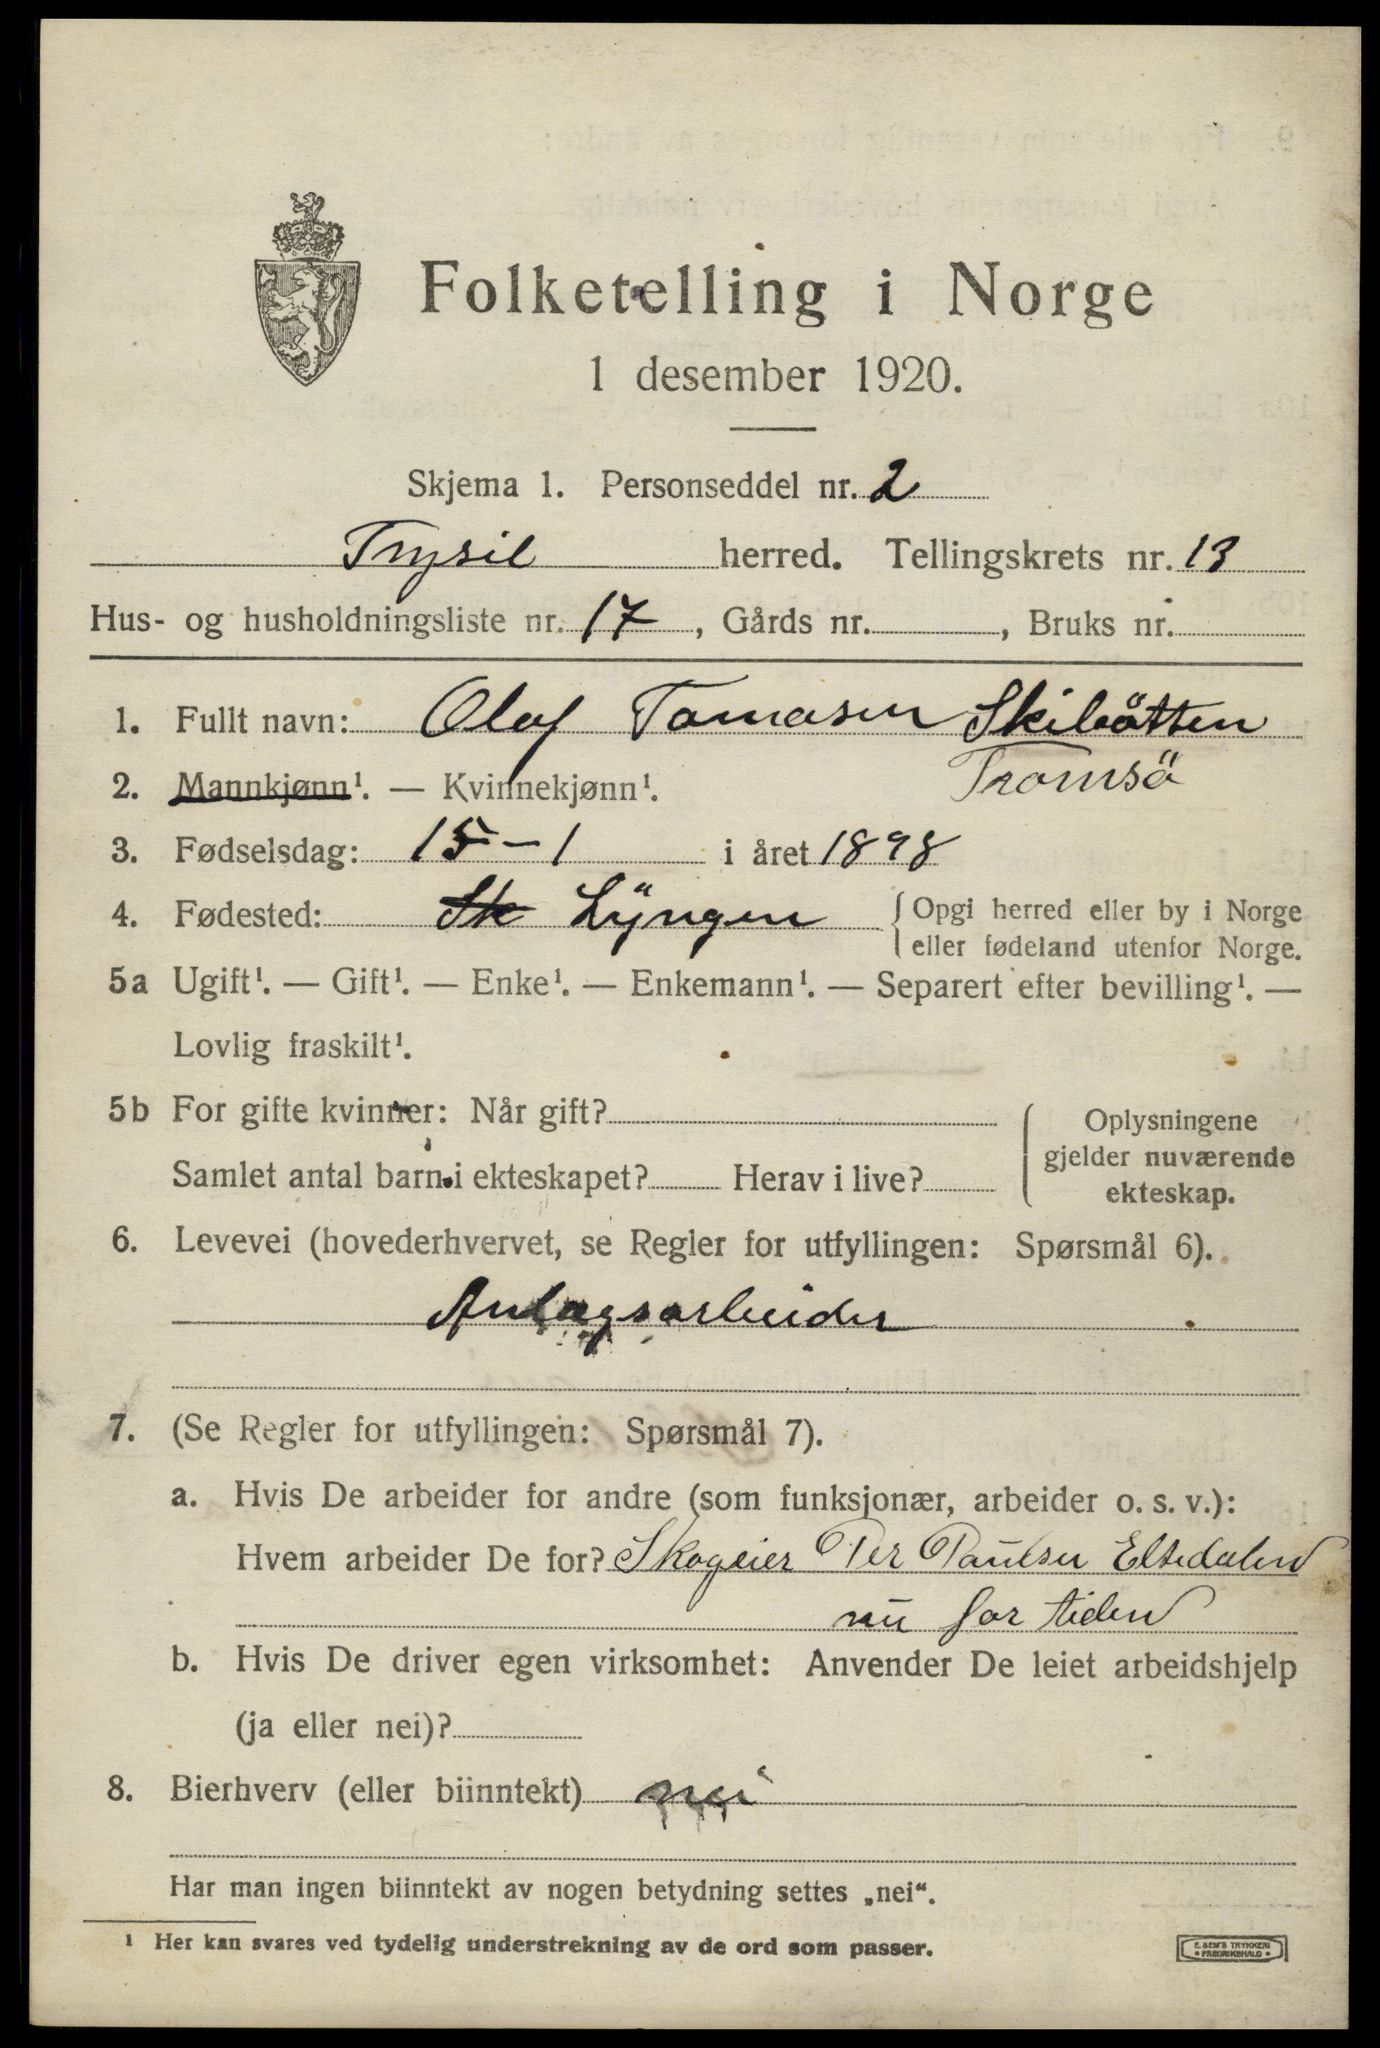 Folketelling i Norge
1 desember 1920.
Skjema 1. Personseddel nr. 2
Trysil herred. Tellingskrets nr. 13
Hus- og husholdningsliste nr. 17, Gårds nr. , Bruks nr.
1. Fullt navn: Olaf Tomasen Skibötten
Tromsö
2. Mannkjønn¹. — Kvinnekjønn¹.
3. Fødselsdag: 15-1 i året 1898
4. Fødested: Sk Lyngen { Opgi herred eller by i Norge
eller fødeland utenfor Norge.
5a Ugift¹. — Gift¹. — Enke¹. — Enkemann¹. — Separert efter bevilling¹. —
Lovlig fraskilt¹.
5b For gifte kvinner: Når gift?
Samlet antal barn i ekteskapet? Herav i live?
Oplysningene
gjelder nuværende
ekteskap.
6. Levevei (hovederhvervet, se Regler for utfyllingen: Spørsmål 6).
Anlagsarbeider
7. (Se Regler for utfyllingen: Spørsmål 7).
a. Hvis De arbeider for andre (som funksjonær, arbeider o. s. v.):
Hvem arbeider De for? Skogeier Per Paulsen Eltedalen
nu for tiden
b. Hvis De driver egen virksomhet: Anvender De leiet arbeidshjelp
(ja eller nei)?
8. Bierhverv (eller biinntekt) nei
Har man ingen biinntekt av nogen betydning settes „nei“.
¹ Her kan svares ved tydelig understrekning av de ord som passer.
E. SEM'S TRYKKERI
• FREDRIKSHALD •